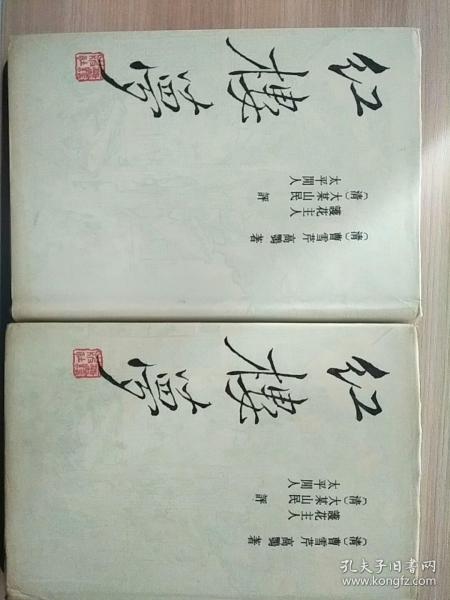 (清)曹雪芹 高鶚 著
護花主人
(清)大某山民 評
太平閒人
红樓夢
(清)曹雪芹 高鶚 著
護花主人
(清)大某山民 評
太平閒人
红樓夢
孔夫子旧书网
www.kongfz.com